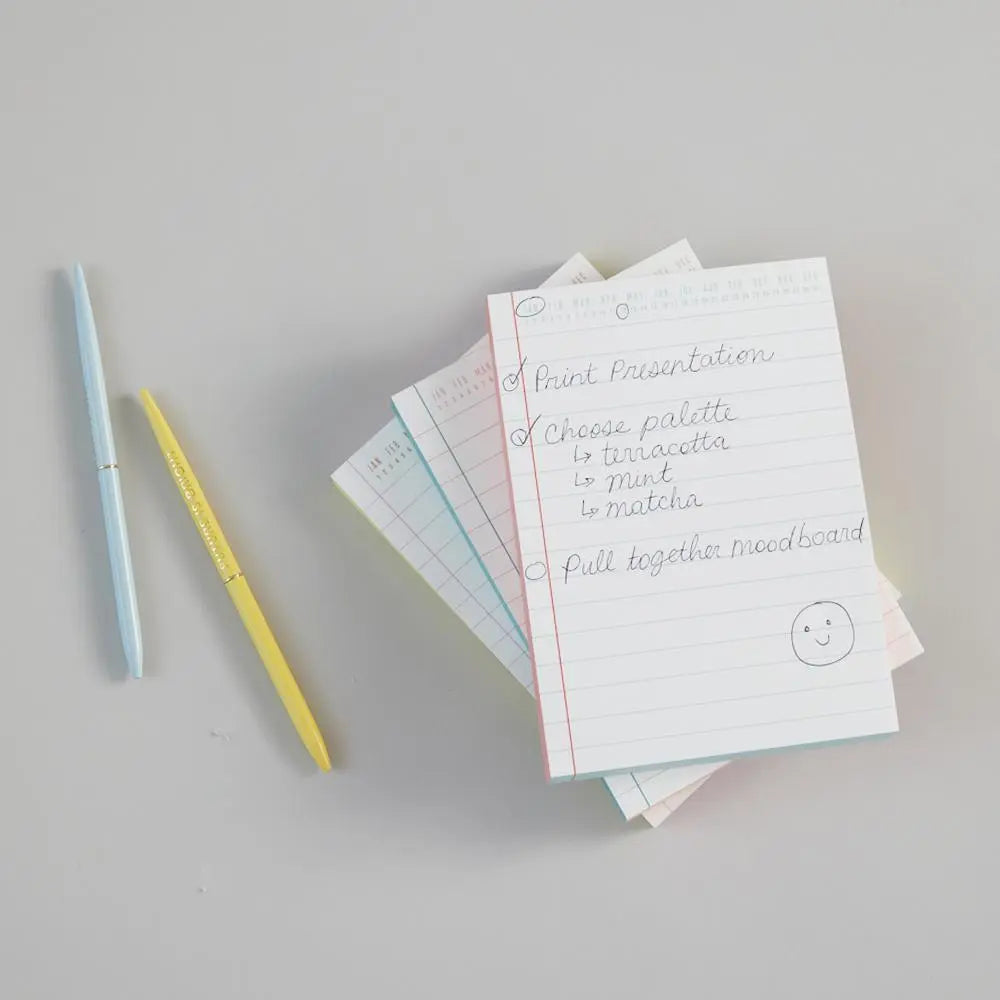 JAN FEB MAR APR MAY JUN JUL AUG SEP OCT NOV DEC
Print Presentation
Choose palette
↳ terracotta
↳ mint
↳ matcha
Pull together moodboard
JAN FEB MAR
JAN FEB